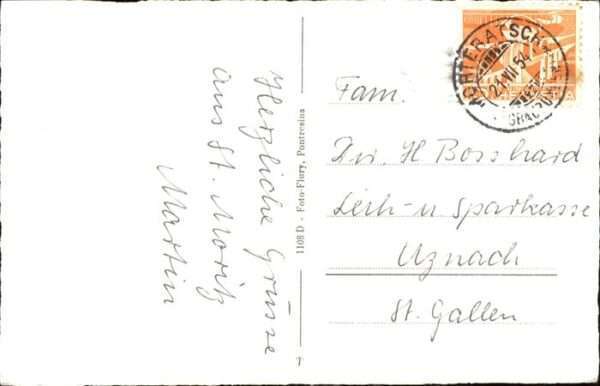 Herzliche Grüsse
aus St. Moritz
Martin
1108 D - Foto-Flury, Pontresina
7
MORTERATSCH
21.VII.54
HELVETIA
Fam.
Dir. H Bosshard
Leih- u Sparkasse
Uznach
St. Gallen